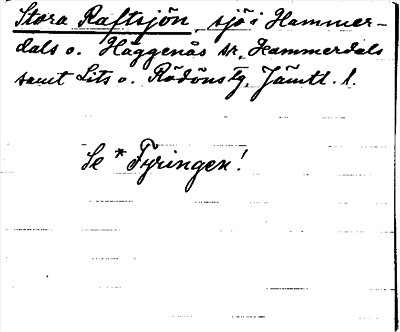 Stora Raftsjön, sjö i Hammer-
dals o. Häggenås sr, Hammerdals
samt Lits o. Rödöns tg, Jämtl. l.
Se * Fyringen!